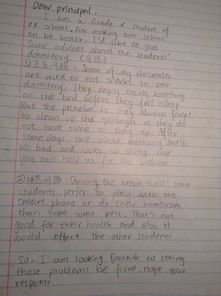 Dear principal,
I am a Grade x student of
xx school, For making our school
to be better, I'd like to give
some advices about the students'
dormitory.
Some of my classmates
are used to eat snacks in our
dormitory. They enjoy eating something
on the bed before they fall asleep.
But the problem is they always forget
to clean up the garbages as long as
not have time to tidy up. After
some days, the whole dormitory smells
so bad and looks so dirty. Hope
you can help us fix the problem.
During the break time, some
students perfer to play with the
smart phone or do their homework
than take some rest. That's not
good for their health and also it
would effect the other students
So, I am looking forward to seeing
those problems be fixed. Hope your
response